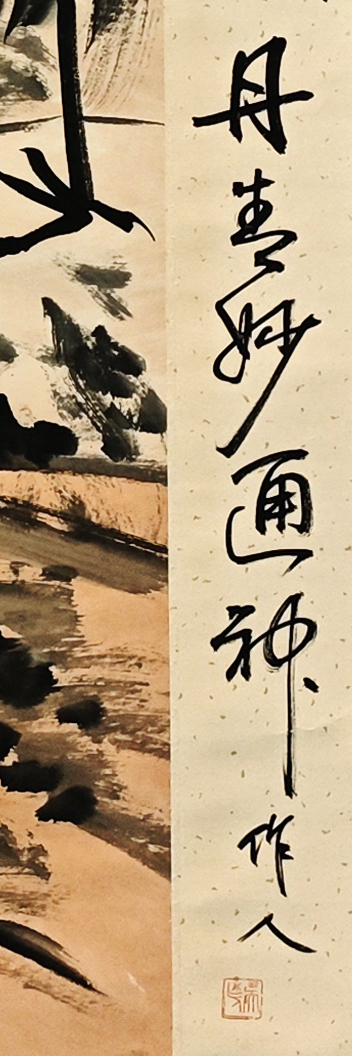 丹青妙通神
作人